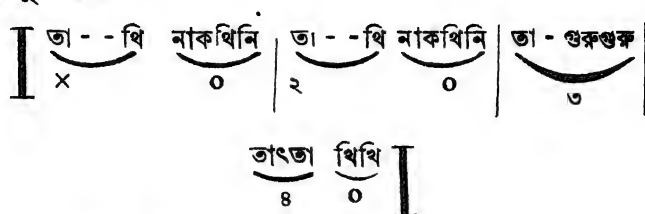 তা - - থি নাকথিনি | তা - - থি নাকথিনি | তা - গুরুগুরু |
× ০ ২ ০ ৩
তাৎতা থিথি
৪ ০